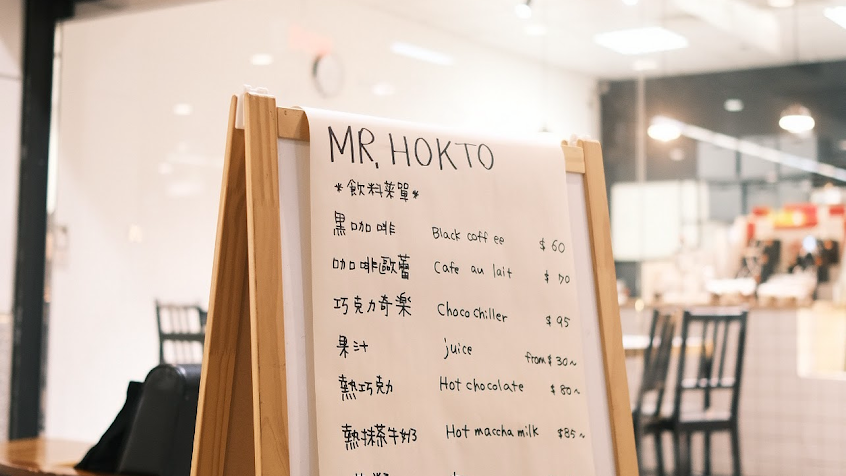 MR. HOKTO
*飲料菜單*
黑咖啡 Black coffee $60
咖啡歐蕾 Cafe au lait $70
巧克力奇樂 Choco chiller $95
果汁 juice from $30~
熱巧克力 Hot chocolate $80~
熱抹茶牛奶 Hot maccha milk $85~